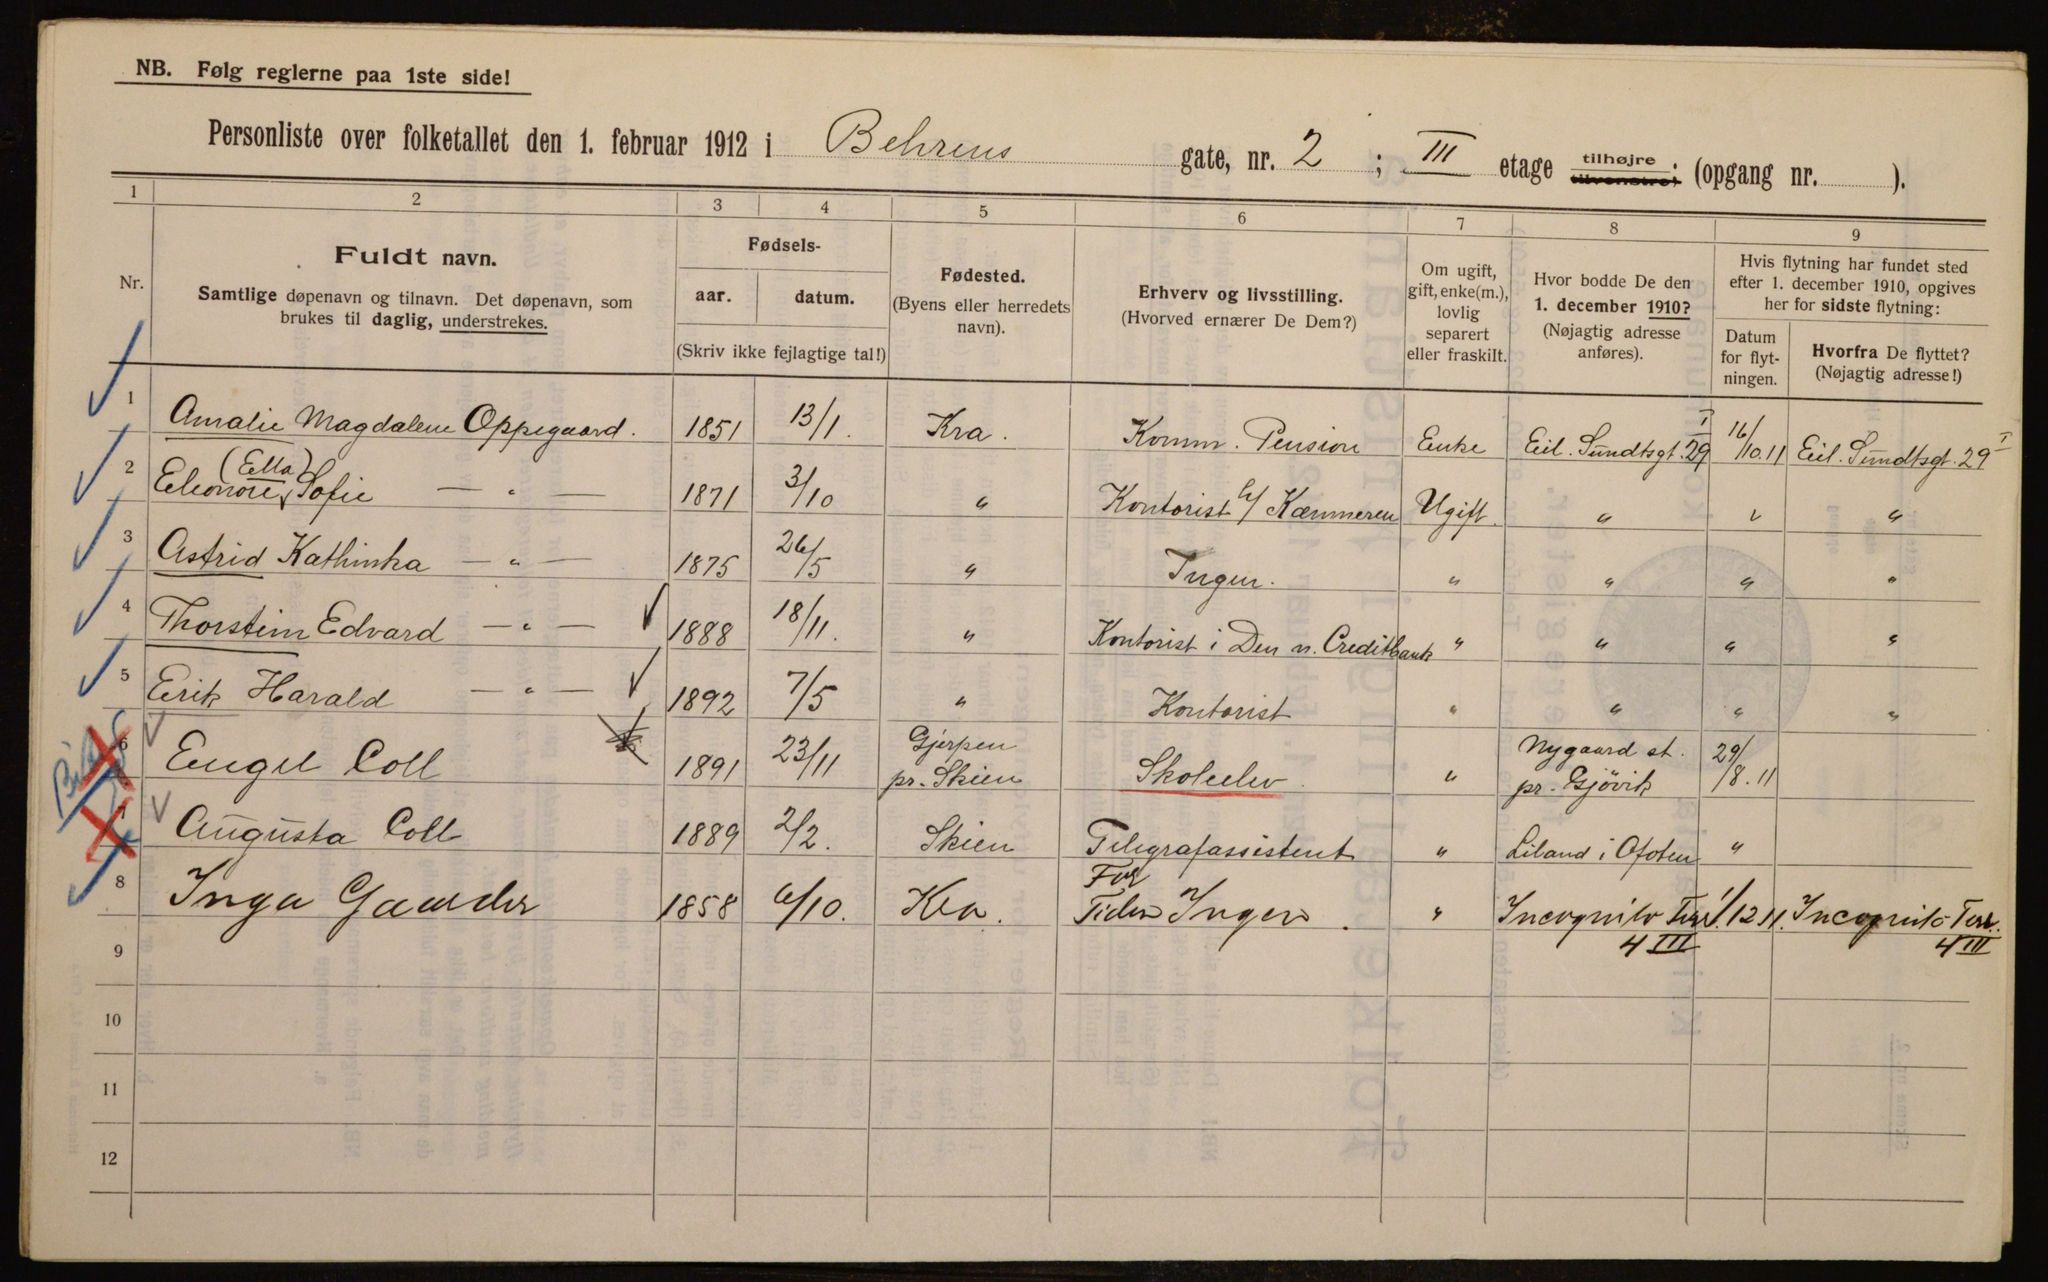 NB. Følg reglerne paa 1ste side!
Personliste over folketallet den 1. februar 1912 i Behrens gate, nr. 2 ; III etage tilhøjre tilvenstre; (opgang nr. ).
1 2 3 4 5 6 7 8 9
Nr.
Fuldt navn.
Samtlige døpenavn og tilnavn. Det døpenavn, som
brukes til daglig, understrekes.
Fødsels-
aar. datum.
(Skriv ikke fejlagtige tal!)
Fødested.
(Byens eller herredets
navn).
Erhverv og livsstilling.
(Hvorved ernærer De Dem?)
Om ugift,
gift, enke(m.),
lovlig
separert
eller fraskilt.
Hvor bodde De den
1. december 1910?
(Nøjagtig adresse
anføres).
Hvis flytning har fundet sted
efter 1. december 1910, opgives
her for sidste flytning:
Datum
for flyt-
ningen.
Hvorfra De flyttet?
(Nøjagtig adresse!)
1 Amalie Magdalene Oppegaard. 1851 13/1. Kra. Komm. Pension Enke Eil. Sundtsgt. 29 I 16/10.11 Eil. Sundtsgt. 29 I
2 Eleonore (Ella) Sofie — " — 1871 3/10 " Kontorist b/ Kæmneren Ugift. " " "
3 Astrid Kathinka — " — 1875 26/5 " Ingen. " " " "
4 Thorstein Edvard — " — 1888 18/11. " Kontorist i Den n. Creditbank " " " "
5 Erik Harald — " — 1892 7/5 " Kontorist " " " "
6 Engel Coll 1891 23/11 Gjerpen pr. Skien Skoleelev " Nygaard st. pr. Gjøvik 29/8.11
7 Augusta Coll 1889 2/2. Skien Telegrafassistent " Liland i Ofoten "
8 Inga Gaarder 1858 6/10. Kra. For Tiden Ingen. " Incognito Terr. 4 III 1/12 11. Incognito Terr. 4 III
9
10
11
12